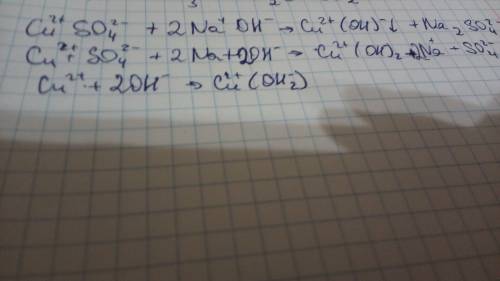 Cu²⁺SO₄²⁻ + 2Na⁺OH⁻ → Cu²⁺(OH)⁻↓ + Na₂SO₄²⁻
Cu²⁺ + SO₄²⁻ + 2Na+2OH⁻ → Cu²⁺(OH)₂ + 2Na⁺ - SO₄²⁻
Cu²⁺ + 2OH⁻ → Cu⁺⁺(OH⁻₂)